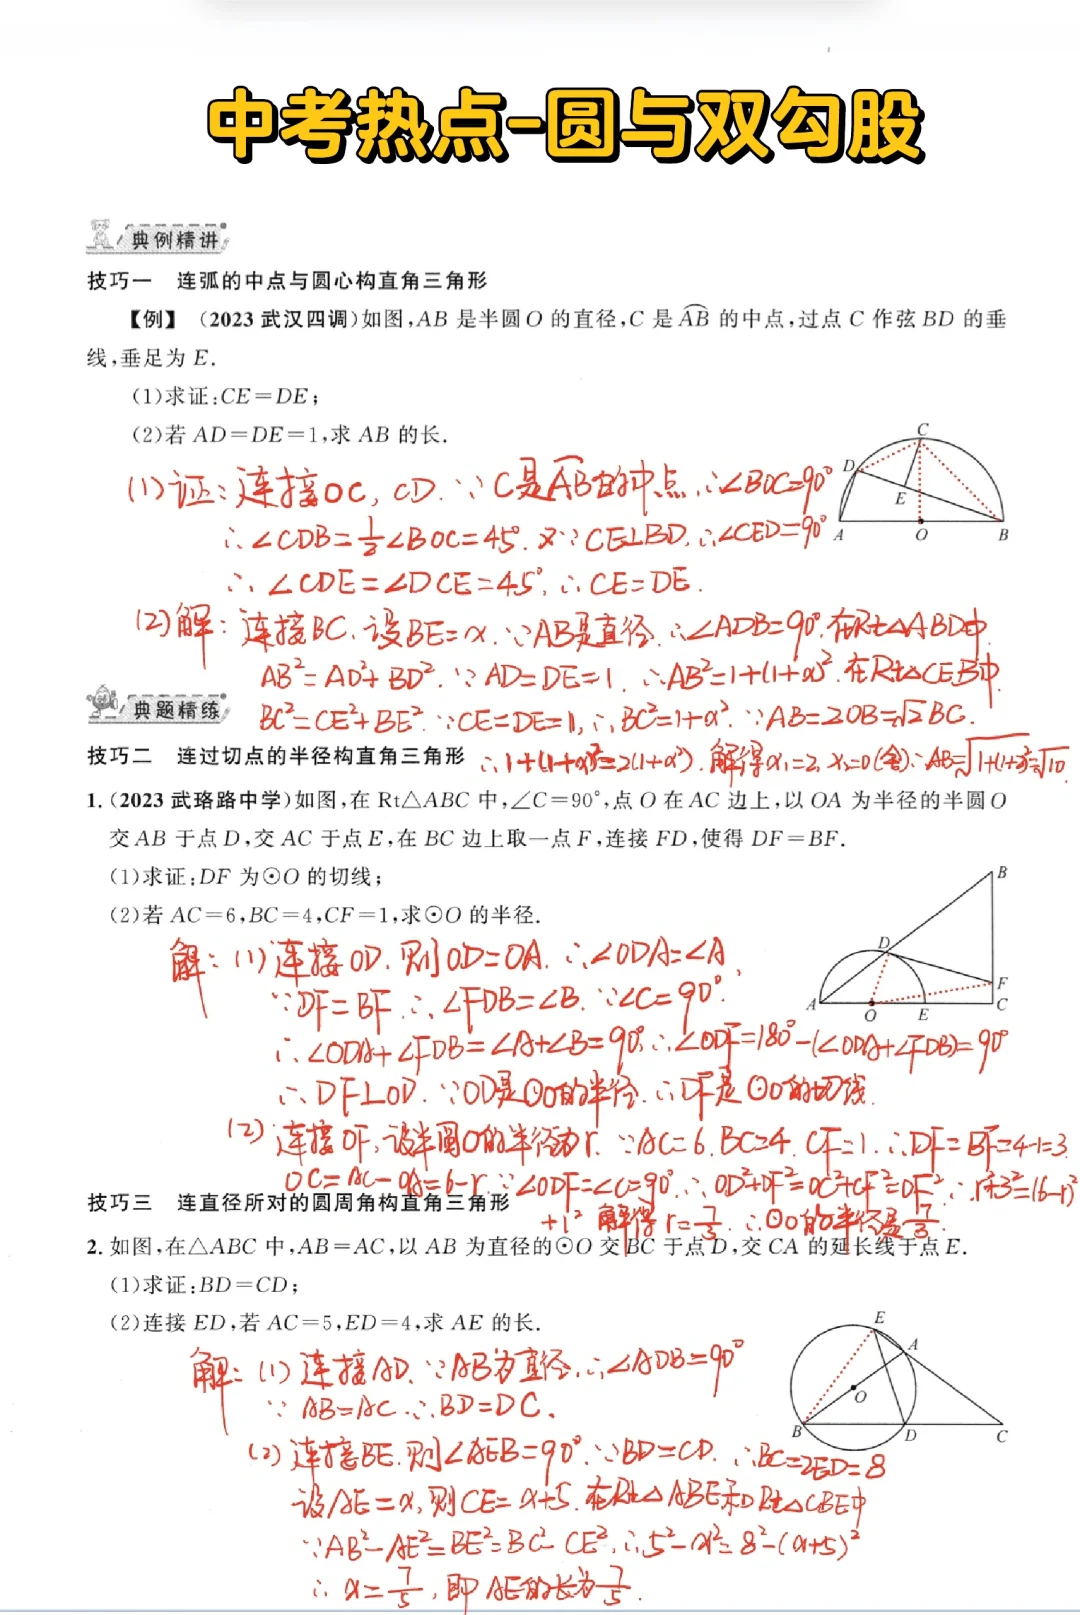 中考热点-圆与双勾股
典例精讲
技巧一 连弧的中点与圆心构直角三角形
【例】(2023武汉四调)如图,AB是半圆O的直径,C是AB⌢的中点,过点C作弦BD的垂
线,垂足为E.
(1)求证:CE=DE;
(2)若AD=DE=1,求AB的长.
C
D
E
A
O
B
(1)证:连接OC,CD.∵C是AB⌢的中点,∴∠BOC=90°
∴∠CDB=1/2∠BOC=45°.又∵CE⊥BD,∴∠CED=90°
∴∠CDE=∠DCE=45°,∴CE=DE.
(2)解:连接BC.设BE=x.∵AB是直径.∴∠ADB=90°.在Rt△ABD中
AB²=AD²+BD².∵AD=DE=1.∴AB²=1+(1+x)².在Rt△CEB中
典题精练
BC²=CE²+BE².∵CE=DE=1,∴BC²=1+x².∵AB=2OB=√2BC.
技巧二 连过切点的半径构直角三角形
∴1+(1+x)²=2(1+x²).解得x₁=2,x₂=0(舍)∴AB=√1+(1+2)²=√10
1.(2023武珞路中学)如图,在Rt△ABC中,∠C=90°,点O在AC边上,以OA为半径的半圆O
交AB于点D,交AC于点E,在BC边上取一点F,连接FD,使得DF=BF.
(1)求证:DF为⊙O的切线;
(2)若AC=6,BC=4,CF=1,求⊙O的半径.
B
D
F
A
O
E
C
解:(1)连接OD.则OD=OA.∴∠ODA=∠A,
∵DF=BF.∴∠FDB=∠B.∵∠C=90°.
∴∠ODA+∠FDB=∠A+∠B=90°.∴∠ODF=180°-(∠ODA+∠FDB)=90°
∴DF⊥OD.∵OD是⊙O的半径.∴DF是⊙O的切线.
(2)连接OF,设半圆O的半径为r.∵AC=6.BC=4.CF=1.∴DF=BF=4-1=3.
OC=AC-OA=6-r.∵∠ODF=∠C=90°.∴OD²+DF²=OC²+CF²=OF².∴r²+3²=(6-r)²
技巧三 连直径所对的圆周角构直角三角形
+1² 解得r=7/3.∴⊙O的半径是7/3.
2.如图,在△ABC中,AB=AC,以AB为直径的⊙O交BC于点D,交CA的延长线于点E.
(1)求证:BD=CD;
(2)连接ED,若AC=5,ED=4,求AE的长.
E
A
O
B
D
C
解:(1)连接AD.∵AB为直径,∴∠ADB=90°
∵AB=AC.∴BD=DC.
(2)连接BE.则∠AEB=90°.∵BD=CD.∴BC=2ED=8
设AE=x,则CE=x+5.在Rt△ABE和Rt△CBE中
∵AB²-AE²=BE²=BC²-CE².∴5²-x²=8²-(x+5)²
∴x=7/5,即AE的长为7/5.